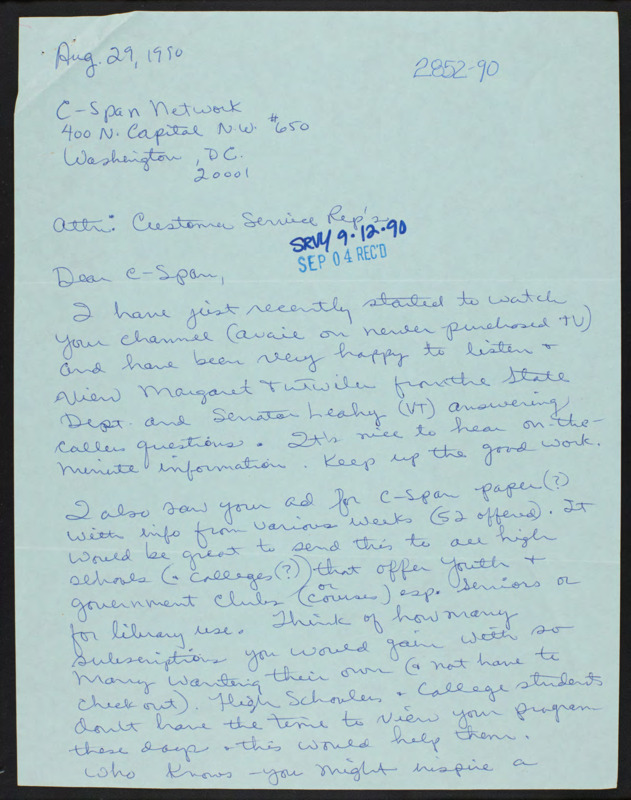 Aug. 29, 1990
2852-90
C-Span Network
400 N. Capital N.W. #650
Washington, D.C.
20001
Attn: Customer Service Rep's
SRVY 9.12.90
SEP 04 REC'D
Dear C-Span,
I have just recently started to watch
your channel (avail on newer purchased TV)
and have been very happy to listen +
view Margaret Tutwiler from the State
Dept. and Senator Leahy (VT) answering
callers questions. It's nice to hear on-the-
minute information. Keep up the good work.
I also saw your ad for C-Span paper(?)
with info from various weeks (52 offered). It
would be great to send this to all high
schools (+ colleges(?)) that offer youth +
government clubs (or courses) esp. seniors or
for library use. Think of how many
subscriptions you would gain with so
many wanting their own (+ not have to
check out). High Schoolers + College students
don't have the time to view your program
these days + this would help them.
Who knows - you might inspire a